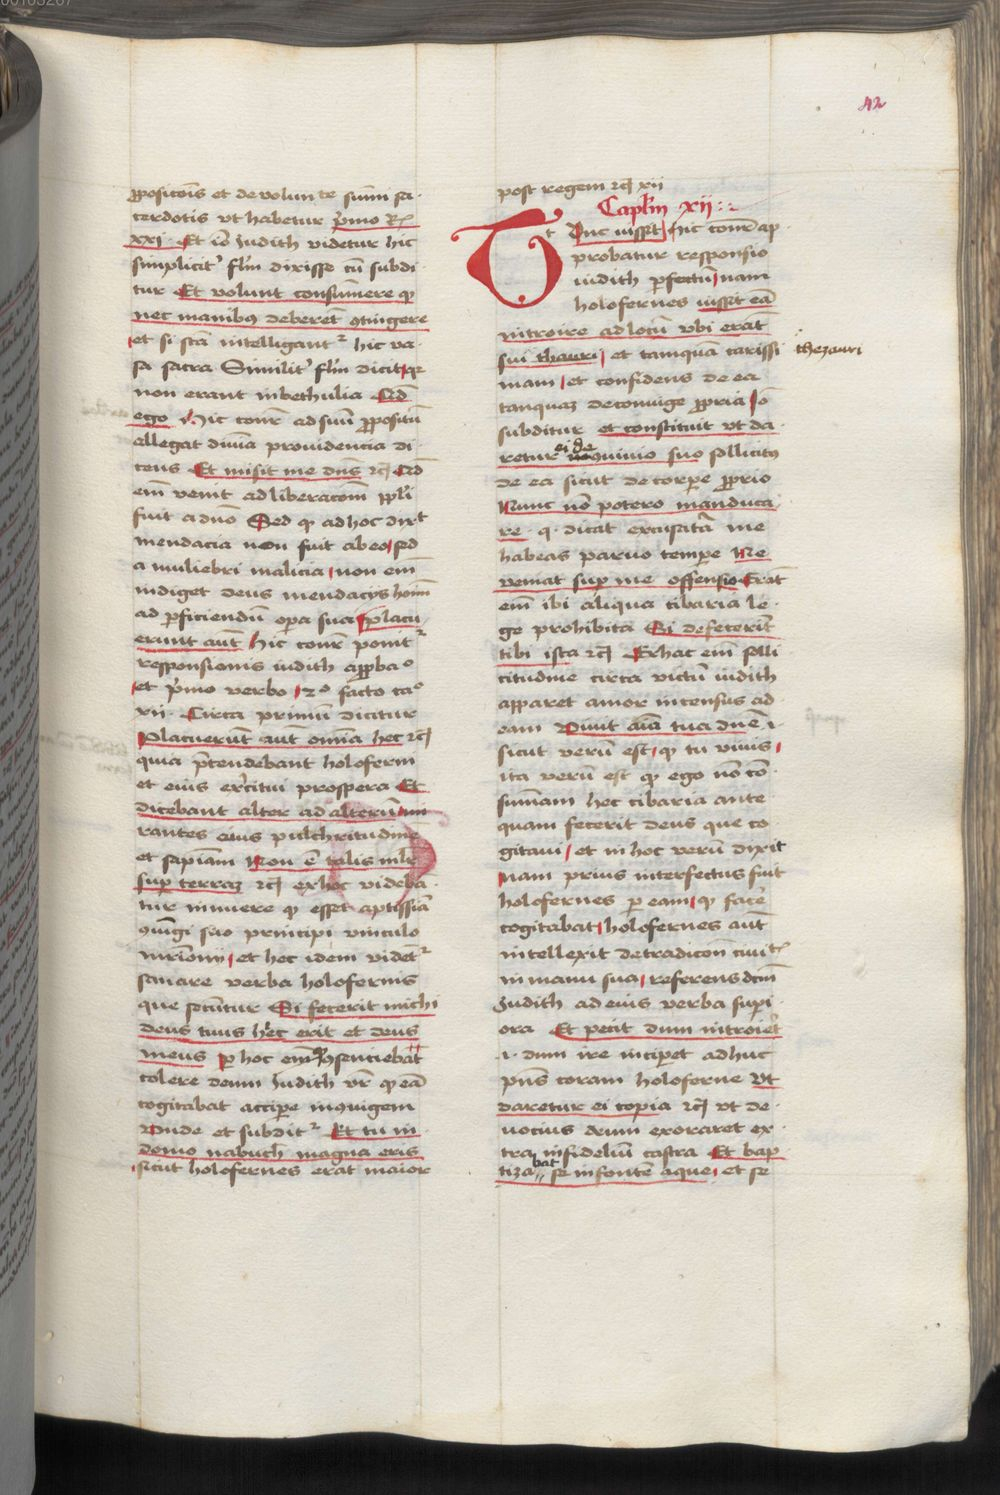 42
ꝓposicoīs et de volunte sum̄i sa
cerdotis vt habetur p̄mo R̄
xxi Et iō Judith videtur hic
simplicitˀ flm̄ dixisse cū subdi
tur Et volunt consum̄ere qͥ
nec manibꝰ deberet ꝯtingere
et si sc̄a intelligant᷑ hic va
sa sacra Similitˀ flm̄ dicit qꝛ
non erant in bethulia Ad
ego Hic conͬ ad suū ꝓpositū
allegat diuīa prouidencia di
cens Et misit me dn̄s ꝛcͣ Ad
em̄ venit ad liberacoēm ppl̄i
fuit a dn̄o Sed qͥ ad hoc dixͥt
mendacia non fuit ab eo sed
a muliebri malicia non em̄
indiget deus mendacijs hoīm
ad ꝑficiendū oꝑa sua Placu
erunt aūt hic conͬ ponit᷑
responsionis iudith appba°
et p̄mo verbo 2° facto ca°
xii Circa primū dicitur
Placuerūt aut om̄ia hec ꝛcͣ
quia p̄tendebant holoferni
et eius exʳcitui prospera Et
dicebant alter ad alterū mi
rantes eius pulchritudinē
et sapiam Non ē talis mlr̄
suꝑ terraꝫ ꝛcͣ ex hoc videba
tur innuere qͥ esset aptissia
ꝯiūgi suo principi vinculo
mr̄imonij et hec idem videt᷑
sonare verba holofernis
que secūtur Si fecerit michi
deus tuus hͦ et erit et deus
meus ꝑ hoc em̄ ꝯsenciebat
colere deum Judith vr̄ qͥ eā
cogitabat acciꝑe in ꝯiugem
Vnde et subdit᷑ Et tu in
domo nabuch magna eris
sicut holofernes erat maior
post regem ꝛcͣ xii
Caplm̄ xij
Tt Tunc iussit hic conͬ ap
probatur responsio
iudith ꝑfectū nam
holofernes iussit eā
introire ad locū vbi erāt
sui thauri et tanquā carissi
thezauri
mam et confidens de ea
tanquaꝫ de coniuge ꝓpria iō
subditur et constituit vt da
retur ei de conuiuio suo sollicitꝰ
de ea sicut de corꝑe ꝓprio
Nunc nō potero manduca
re q. dicat excusatā me
habeas paruo temꝑe Ne
veniat suꝑ me offensio Erāt
em̄ ibi aliqua cibaria le
ge prohibita Si defecerīt
tibi ista ꝛcͣ Ex hac em̄ solli
citudine circa victū iudith
apparet amor incensus ad
eam Viuit aīa tua dn̄e i
sicut verū est qͥ tu viuis
ita verū est qͥ ego nō cō
sumam hec cibaria ante
quam fecerit deus que co
gitaui et in hoc verū dixit
nam prius interfectus fuit
holofernes ꝑ eam qͥ facē
cogitabat holofernes aūt
intellexit de tradicoēn ciuitͭ
in manu sua referens dcm̄
Judith ad eius verba suꝑi
ora Et peciit dum introiet
.i. dum ire incipet adhuc
pn̄s coram holoferne Vt
daretur ei copia ꝛcͣ vt de
uocius deum exoraret ex
tra infideliū castra Et bap
tiza bat se in fontē aque et se